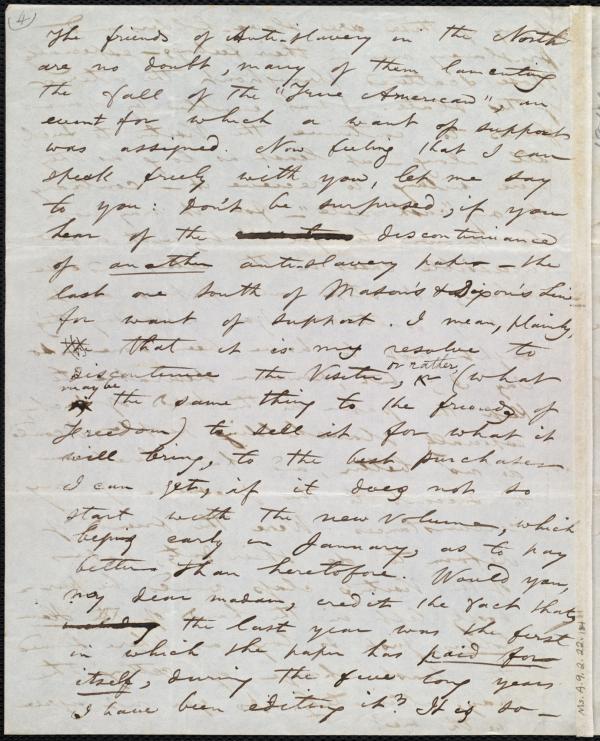 4
The friends of Anti-slavery in the North
are no doubt, many of them lamenting
the fall of the "True American", an
event for which a want of support
was assigned. Now feeling that I can
speak freely with you, let me say
to you: Don't be surprised, if you
hear of the discontinuance
of another anti-slavery paper - the
last one South of Mason's & Dixon's Line
for want of support. I mean, plainly,
that it is my resolve to
discontinue the Visiter, or rather, (what
may be the same thing to the friends of
Freedom) to sell it for what it
will bring, to the best purchaser
I can get, if it does not so
start with the new volume, which
begins early in January, as to pay
better than heretofore. Would you,
my dear madam, credit the fact that
the last year was the first
in which the paper has paid for
itself, during the five long years
I have been editing it? It is so -
Ms. A. 9. 2. 22.